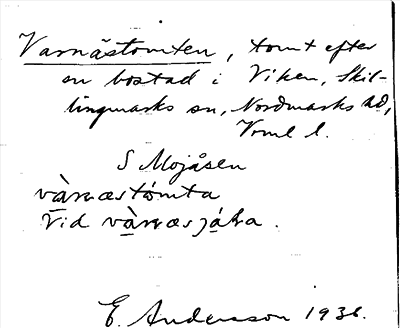 Varnästomten, tomt efter
en bostad i Viken, Skil-
lingmarks sn, Nordmarks hd,
Vrml l.
S Mojåsen
vàrnæstómta
Vid vàrnæsjáta.
E. Andersson 1936.